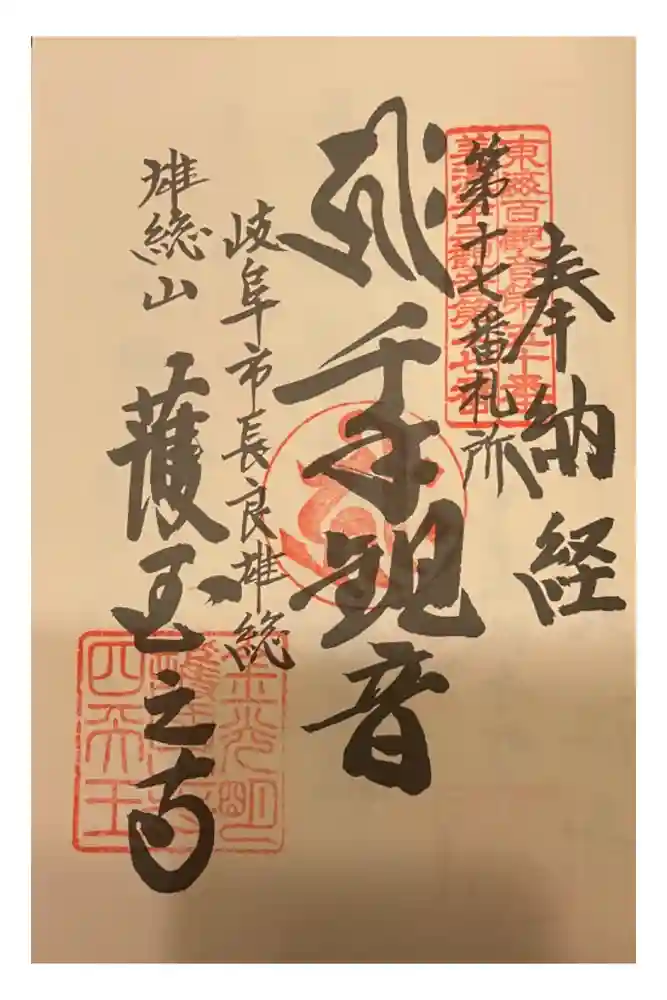 奉納経
東海百觀音第五十番
第十七番札所
千手観音
岐阜市長良雄総
雄総山
護国之寺
金光明
四天王